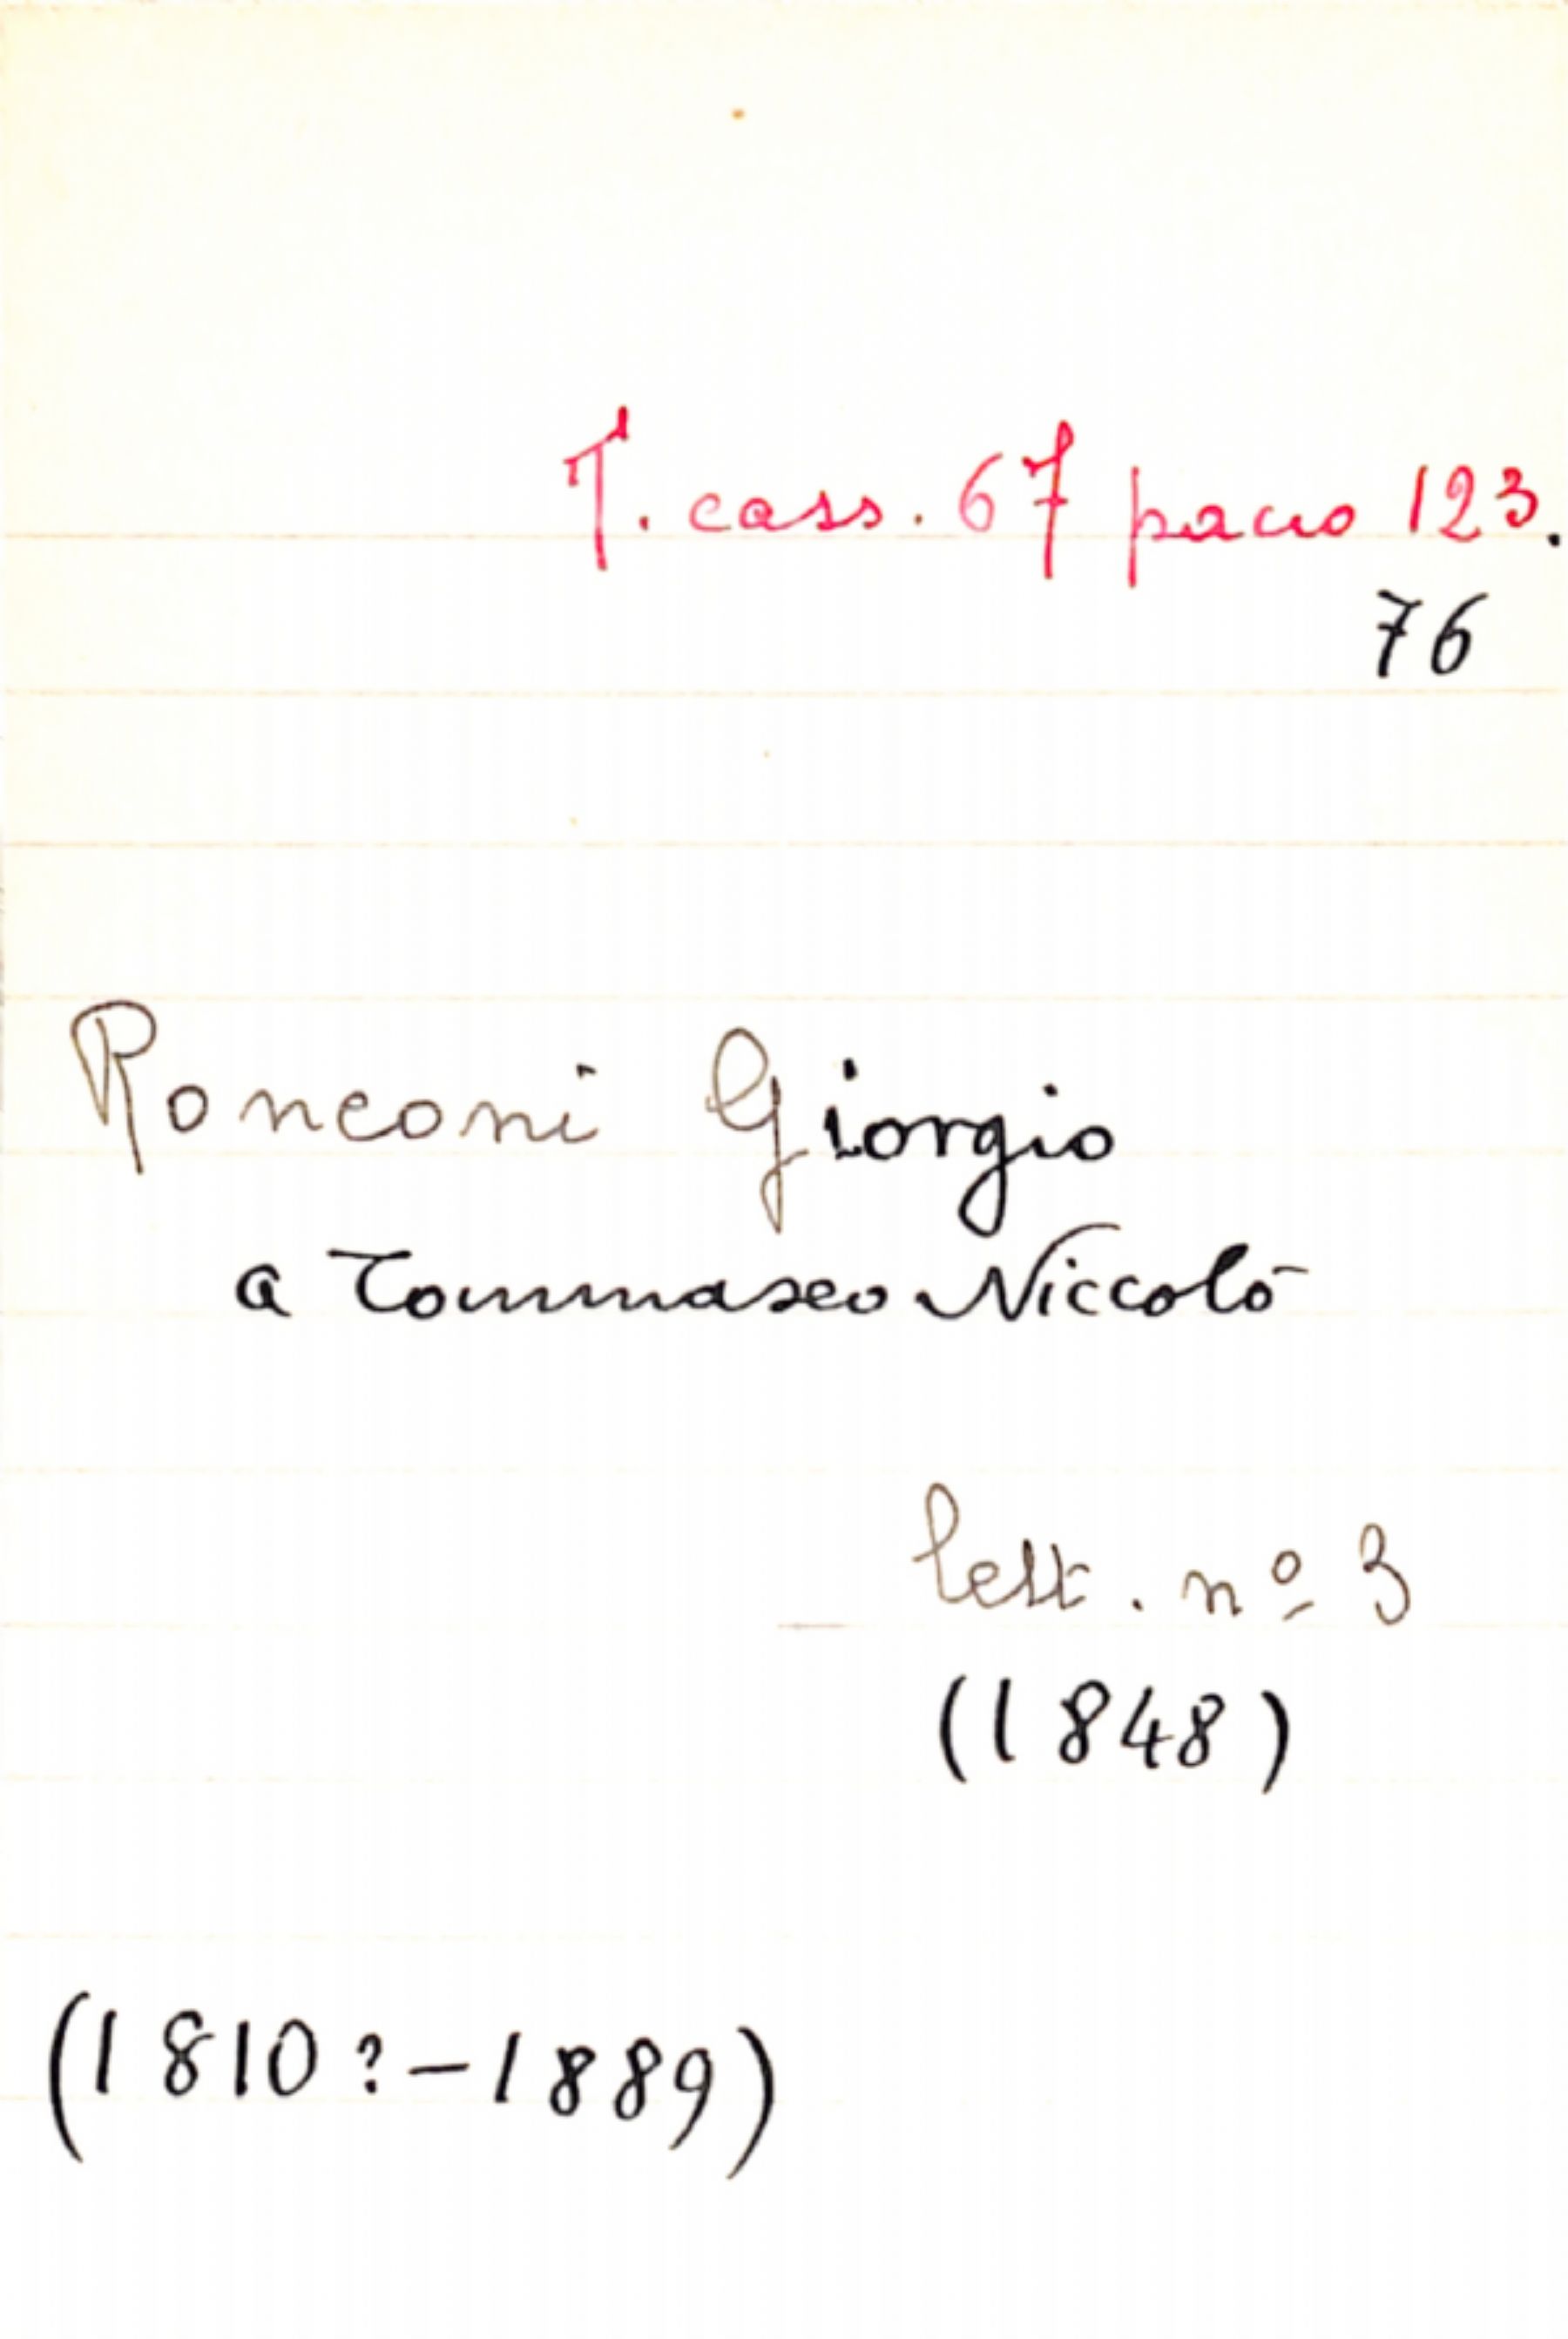 T. cass. 67 pacco 123.
76
Ronconi Giorgio
a Tommaseo Niccolò
lett. nº 3
(1848)
(1810?-1889)